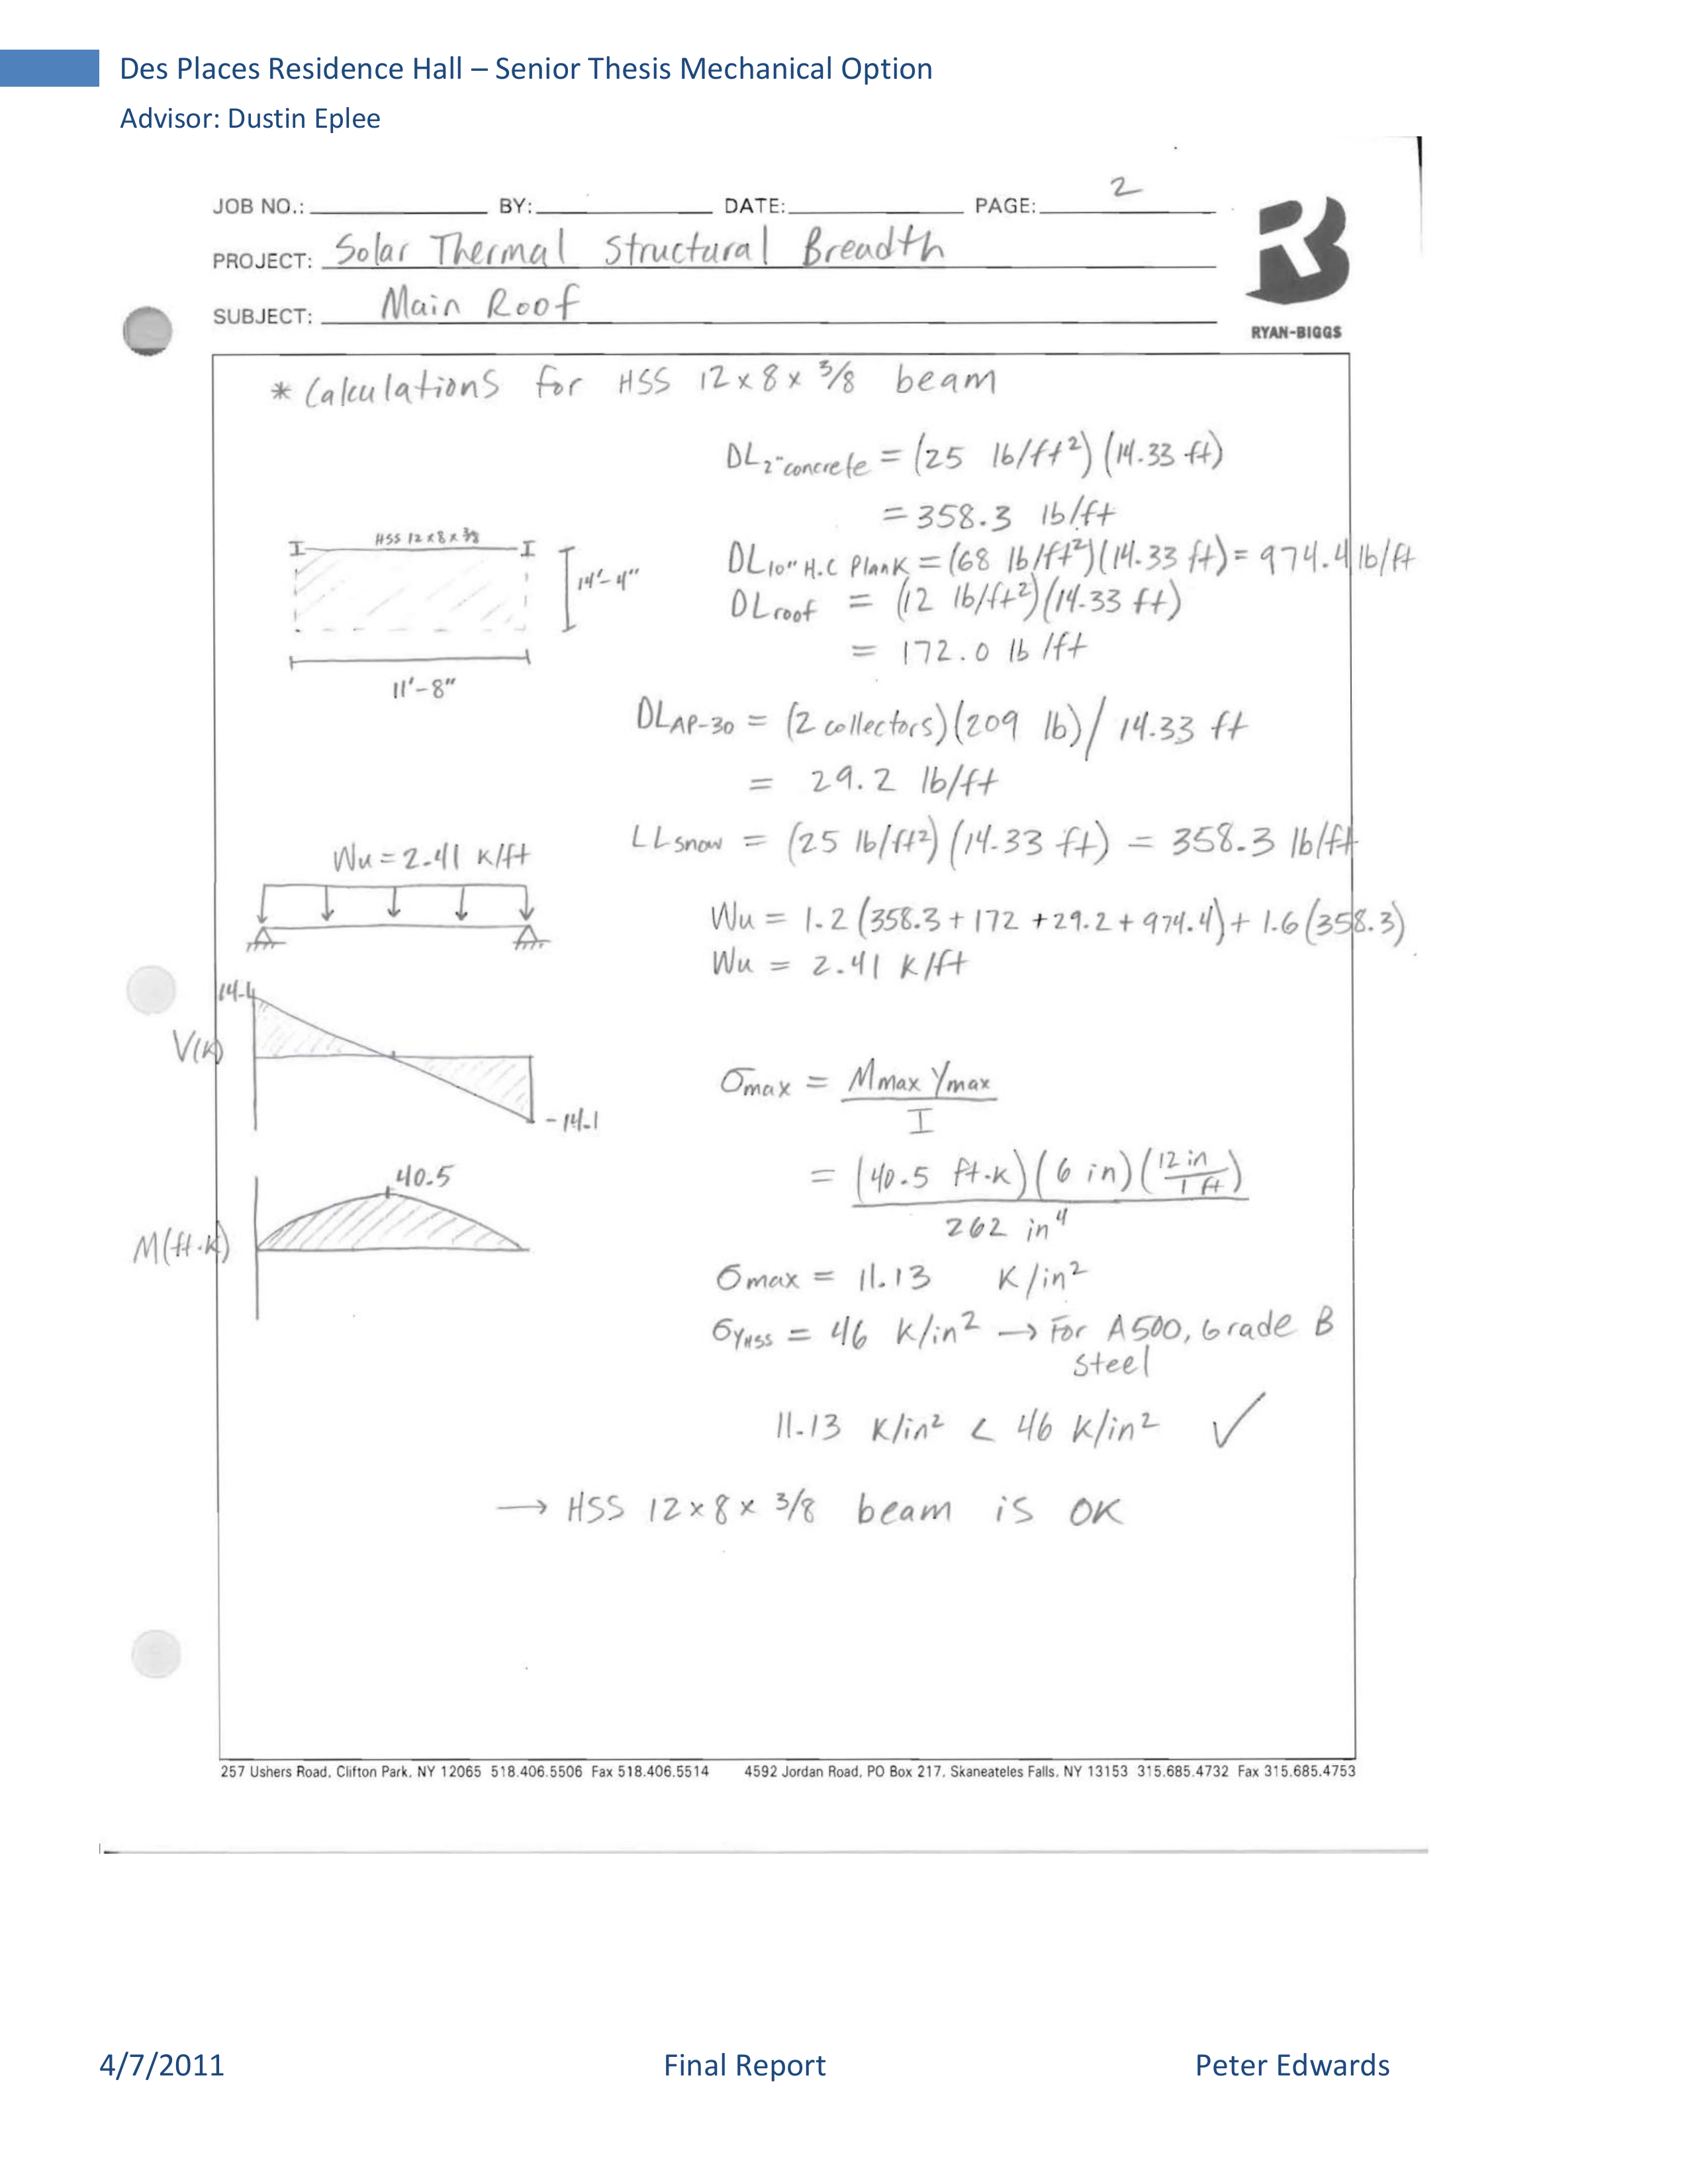 Des Places Residence Hall – Senior Thesis Mechanical Option
Advisor: Dustin Eplee
JOB NO.: BY: DATE: PAGE: 2
PROJECT: Solar Thermal Structural Breadth
SUBJECT: Main Roof
RYAN-BIGGS
* Calculations for HSS 12 x 8 x 3/8 beam
DL2" concrete = (25 lb/ft²)(14.33 ft)
= 358.3 lb/ft
HSS 12 x 8 x 3/8
I I
14'-4"
11'-8"
DL10" H.C Plank = (68 lb/ft²)(14.33 ft) = 974.4 lb/ft
DLroof = (12 lb/ft²)(14.33 ft)
= 172.0 lb/ft
DLAP-30 = (2 collectors)(209 lb)/14.33 ft
= 29.2 lb/ft
LLsnow = (25 lb/ft²)(14.33 ft) = 358.3 lb/ft
Wu = 2.41 K/ft
Wu = 1.2(358.3 + 172 + 29.2 + 974.4) + 1.6(358.3)
Wu = 2.41 K/ft
14.1
V(K)
-14.1
σmax = Mmax Ymax
I
= (40.5 ft.K)(6 in)(12 in / 1 ft)
262 in⁴
40.5
M(ft.K)
σmax = 11.13 K/in²
σYHSS = 46 K/in² → For A500, Grade B
Steel
11.13 K/in² < 46 K/in² ✓
→ HSS 12 x 8 x 3/8 beam is OK
257 Ushers Road, Clifton Park, NY 12065 518.406.5506 Fax 518.406.5514 4592 Jordan Road, PO Box 217, Skaneateles Falls, NY 13153 315.685.4732 Fax 315.685.4753
4/7/2011 Final Report Peter Edwards